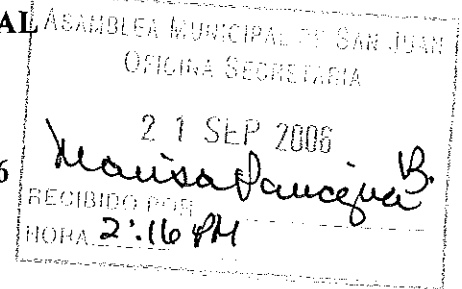 AL
ASAMBLEA MUNICIPAL DE SAN JUAN
OFICINA SECRETARIA
21 SEP 2006
6
Marisa
RECIBIDO POR
HORA 2:16 PM